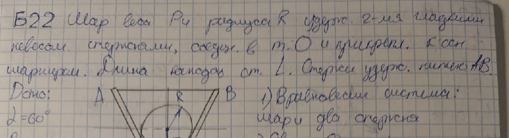 Б22 Шар веса P и радиуса R удерж. 2-мя гладкими
невесом. стержнями, соедин. в т. O и прикрепл. к
шарниром. Длина каждого ст. L. Стержни удерж. нитью AB.
Дано:
A R B
1) В равновесии система:
α=60°
шар и два стержня